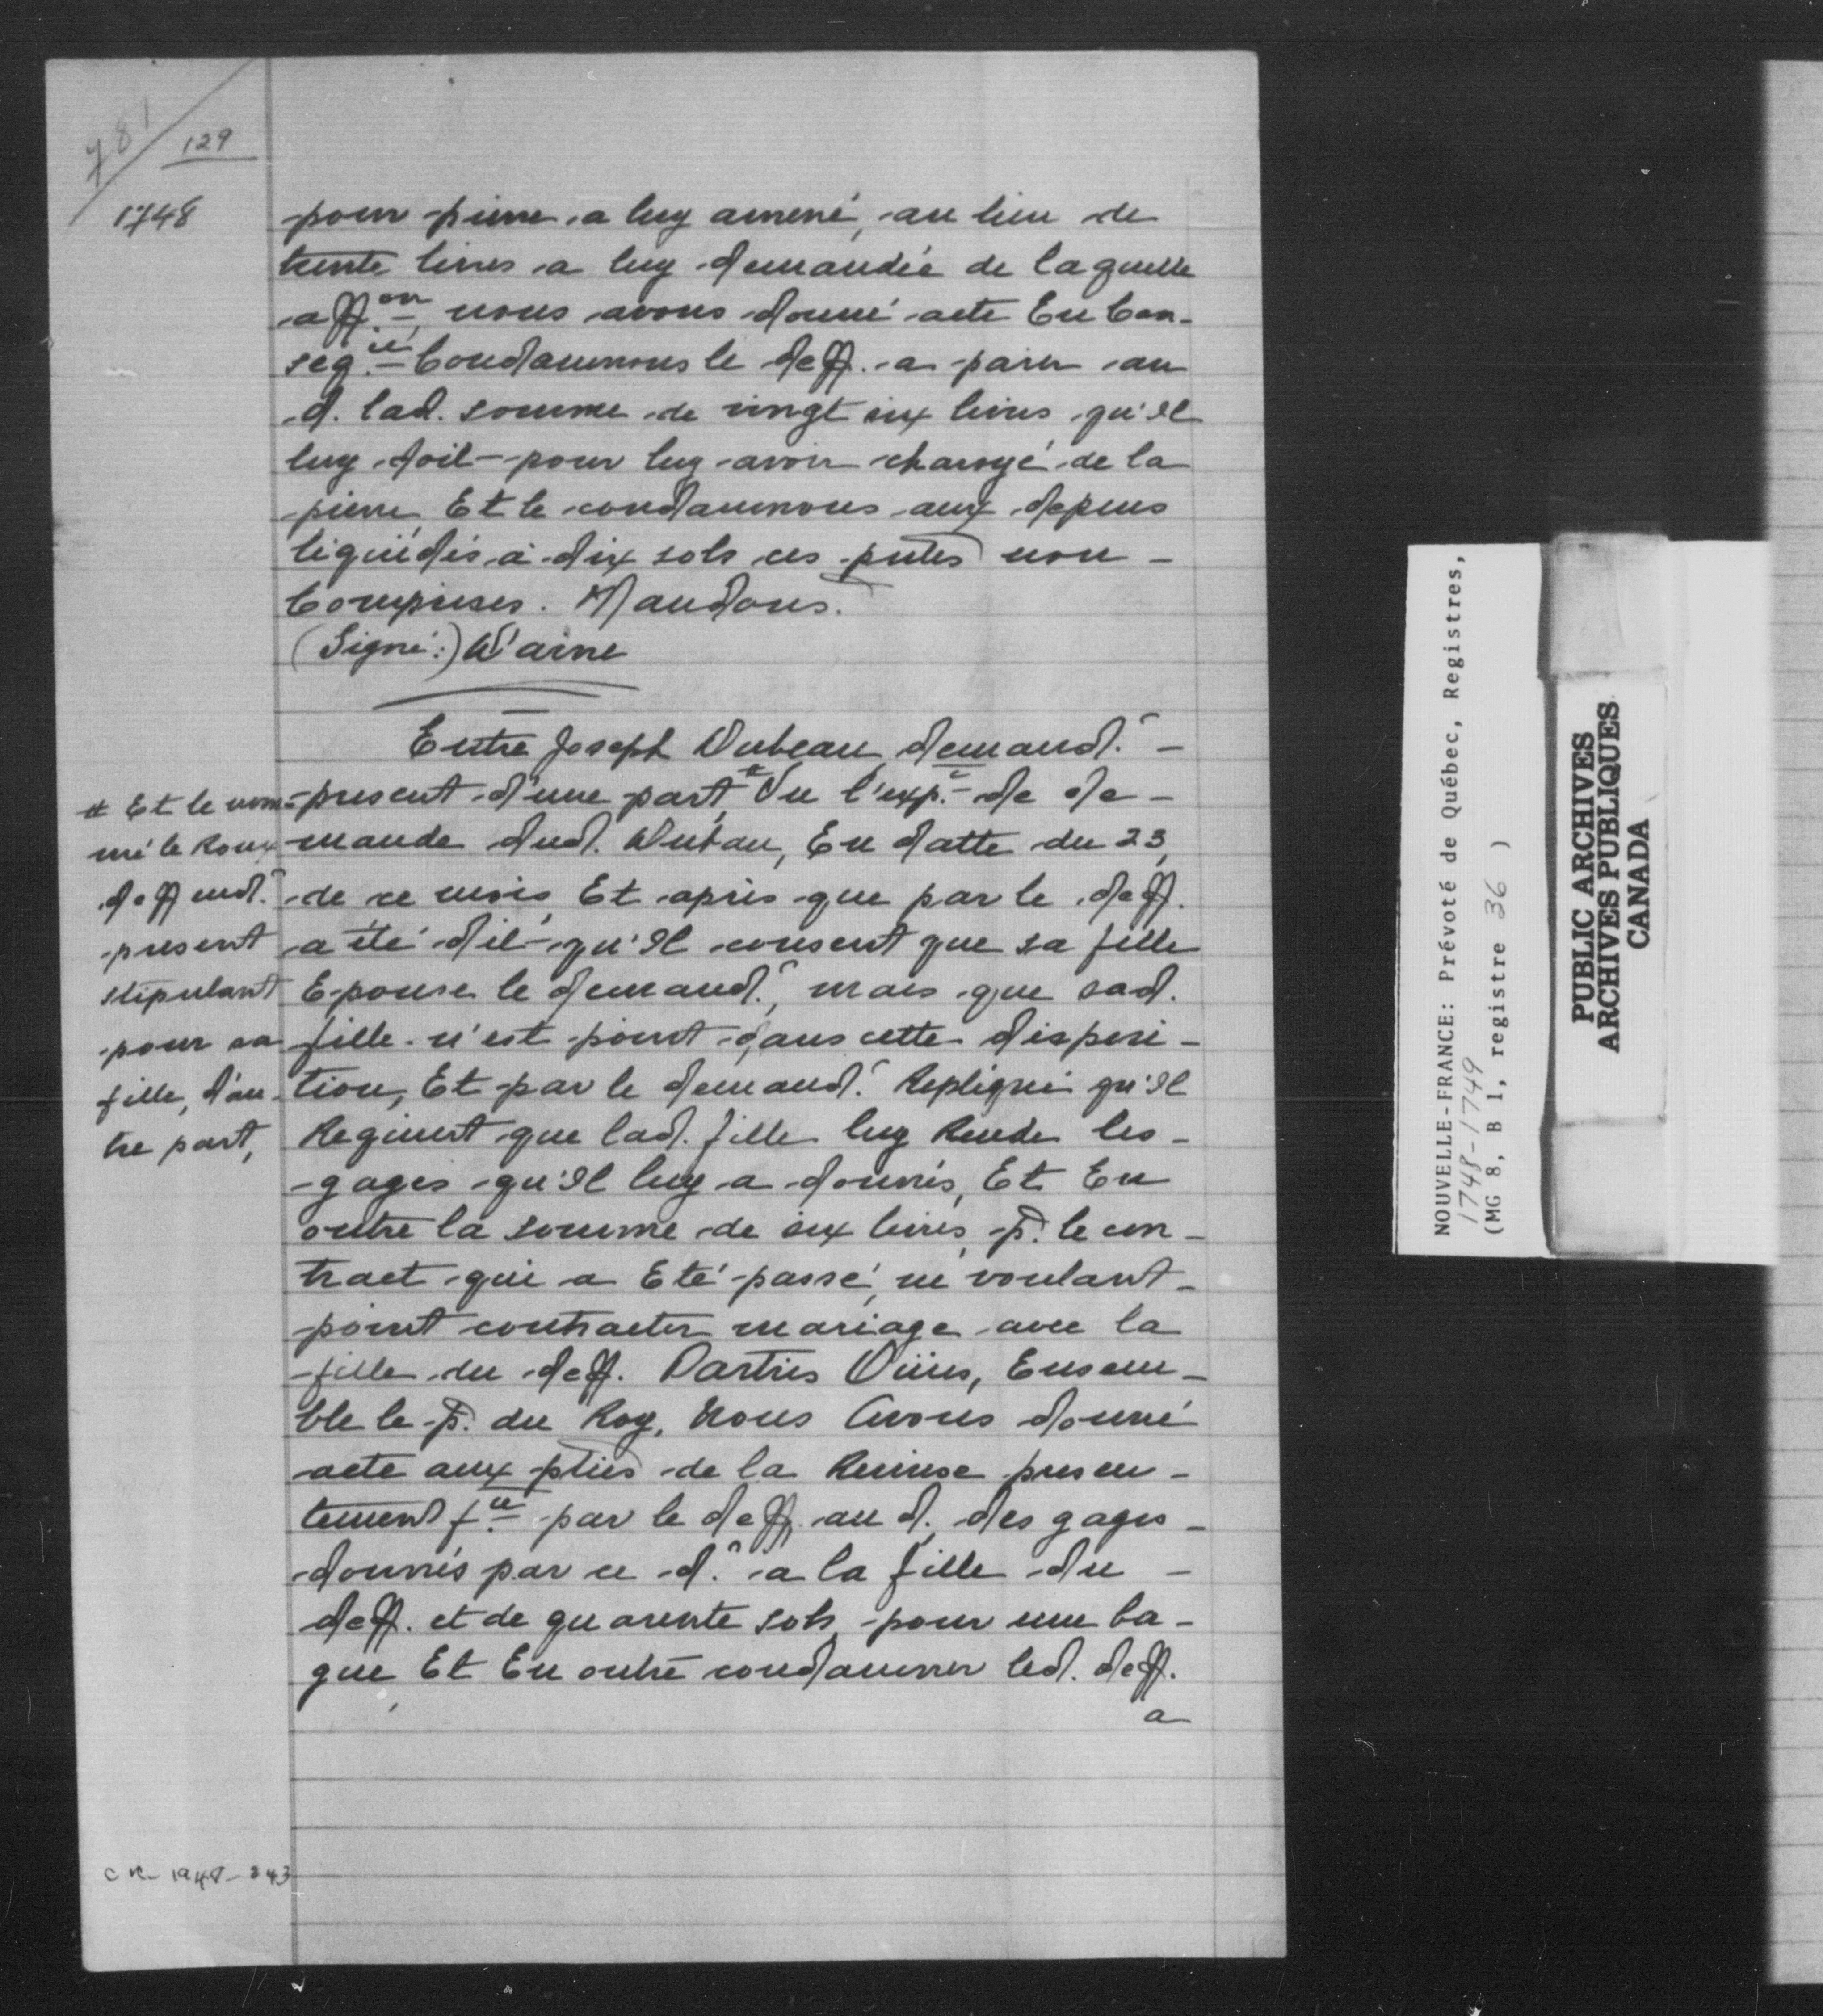 781
129
1748
pour pierre a luy amené, au lieu de
trente livres a luy demandée de laquelle
aff.on nous avons donné acte En Con-
seq.ce Condamnons le deff. a paier au
d. lad. somme de vingt six livres qu'Il
luy doit pour luy avoir charoyé de la
pierre Et le condamnons aux depens
liquidés à dix sols ces pntes non
Comprises. Mandons.
(Signé:) D'aine
Entre Joseph Dubeau demand.r
present d'une part * Vu l'exp.n de de-
mande dud. Dubau, En datte du 23
de ce mois, Et après que par le deff.
a été dit qu'Il consent que sa fille
Epouse le demand.r, mais que sad.
fille n'est point dans cette disposi-
tion, Et par le demand.r Repliqué qu'Il
Requiert que lad. fille luy Rende les
gages qu'Il luy a donnés, Et En
outre la somme de six livres p.r le con-
tract qui a Eté passé, ne voulant
point contracter mariage avec la
fille du deff. Parties Ouïes, Ensem-
ble le p.r du Roy, Nous Avons donné
acte aux pties de la Remise presen-
tement f.te par le deff. au d. des gages
donnés par ce d.r a la fille du
deff. et de quarente sols pour une ba-
gue Et En outre condamner led. deff.
a
* Et le nom-
mé le Roux
deffend.r
present
stipulant
pour sa
fille, d'au-
tre part,
CR-1948-243
NOUVELLE-FRANCE: Prévoté de Québec, Registres,
1748-1749
(MG 8, B 1, registre 36 )
PUBLIC ARCHIVES
ARCHIVES PUBLIQUES
CANADA